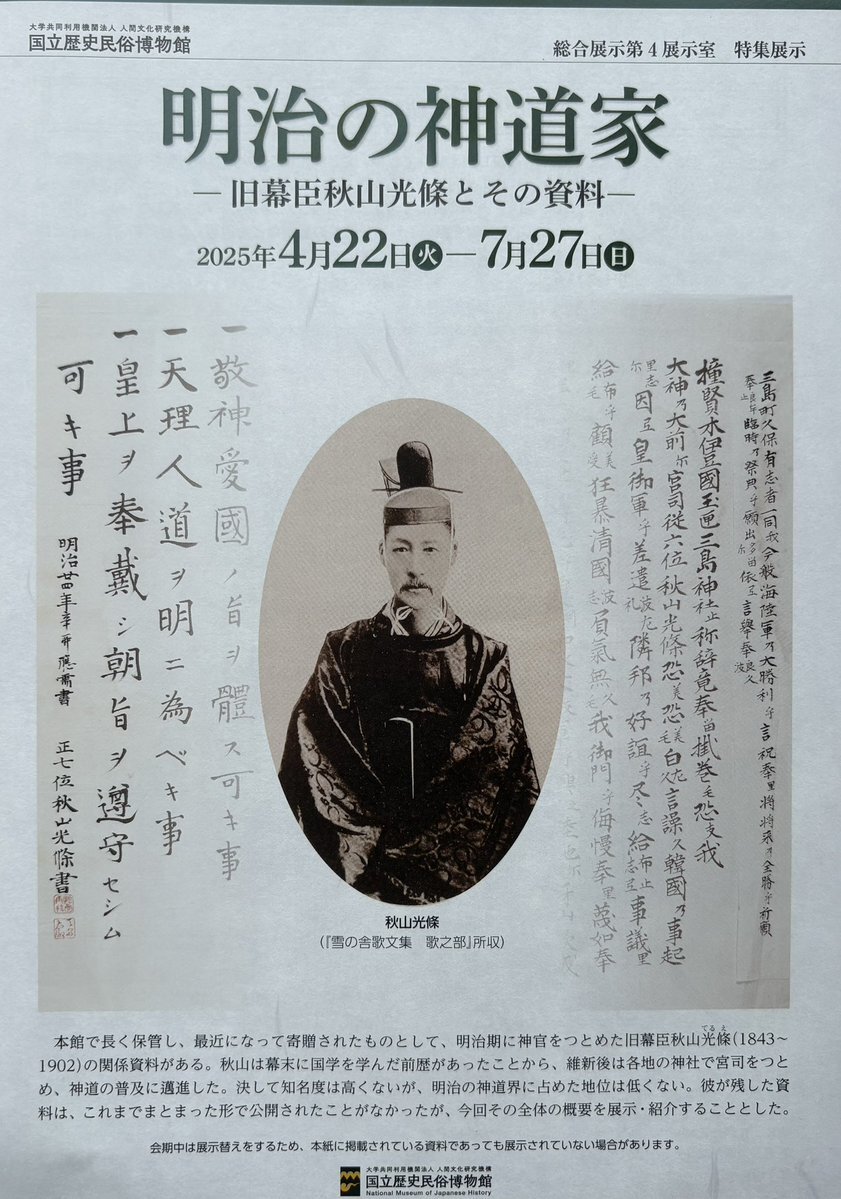 大学共同利用機関法人 人間文化研究機構
国立歴史民俗博物館
総合展示第4展示室 特集展示
明治の神道家
―旧幕臣秋山光條とその資料―
2025年4月22日火―7月27日日
一敬神愛國ノ旨ヲ體ス可キ事
一天理人道ヲ明ニ為ベキ事
一皇上ヲ奉戴シ朝旨ヲ遵守セシム
可キ事
正七位秋山光條書
三島町久保有志者一同我今般海陸軍乃大勝利乎言祝奉里将将来乃全勝乎祈願
撞賢木伊豆國玉匣三島神社止称辞竟奉留掛巻毛恐支我
大神乃大前尓宮司従六位秋山光條恐美恐美毛白左久言譟久韓國乃事起
里志尓因互皇御軍乎差遣波左礼隣邦乃好誼乎尽志給布止志互事議里
給布乎毛顧美受狂暴清國波志負氣無久毛我御門乎侮慢奉里蔑如奉
秋山光條
(『雪の舎歌文集 歌之部』所収)
てるえ
本館で長く保管し、最近になって寄贈されたものとして、明治期に神官をつとめた旧幕臣秋山光條(1843〜
1902)の関係資料がある。秋山は幕末に国学を学んだ前歴があったことから、維新後は各地の神社で宮司をつと
め、神道の普及に邁進した。決して知名度は高くないが、明治の神道界に占めた地位は低くない。彼が残した資
料は、これまでまとまった形で公開されたことがなかったが、今回その全体の概要を展示・紹介することとした。
会期中は展示替えをするため、本紙に掲載されている資料であっても展示されていない場合があります。
大学共同利用機関法人 人間文化研究機構
国立歴史民俗博物館
National Museum of Japanese History